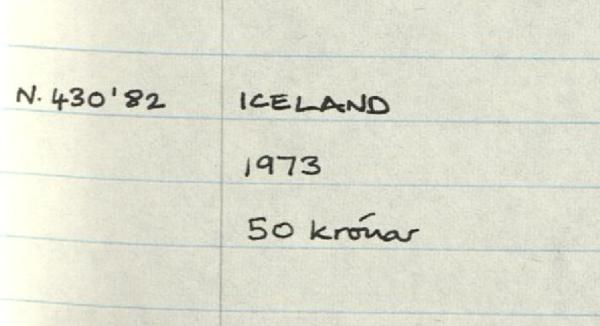 N. 430'82 ICELAND
1973
50 krónar